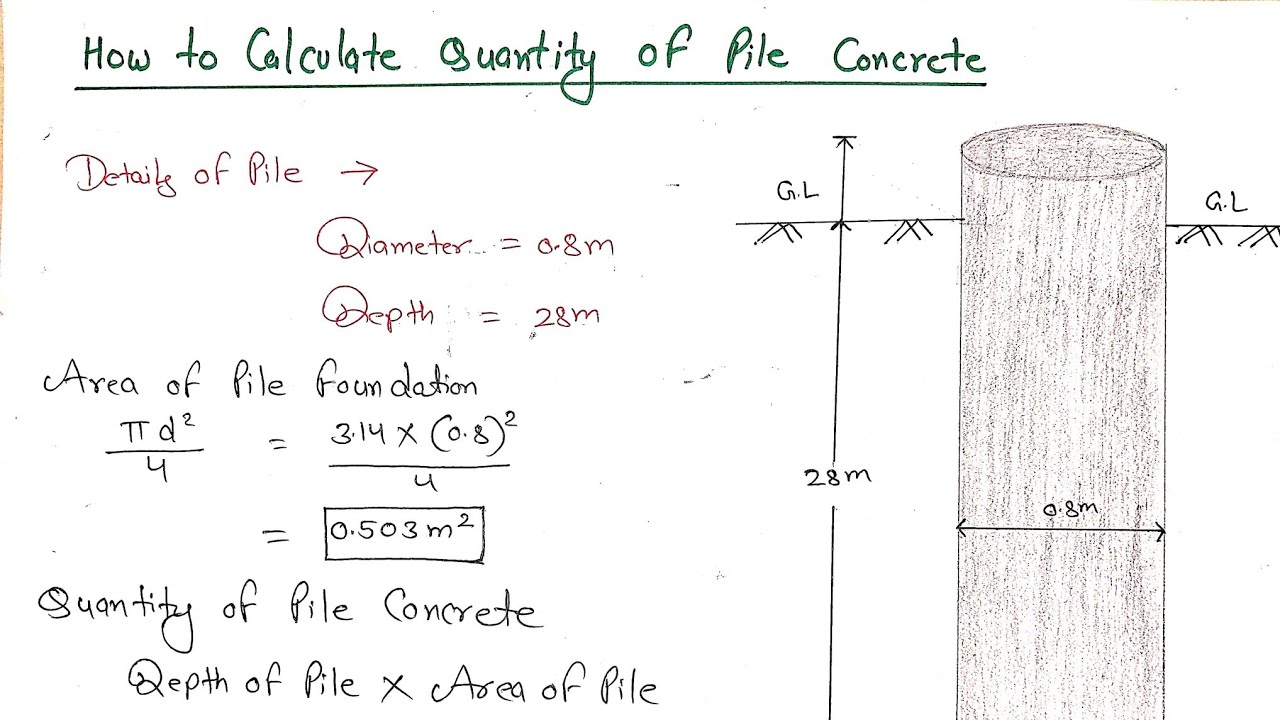 How to Calculate Quantity of Pile Concrete
Details of Pile →
Diameter = 0.8m
Depth = 28m
Area of Pile foundation
πd²/4 = 3.14 × (0.8)²/4
= 0.503 m²
Quantity of Pile Concrete
Depth of Pile × Area of Pile
G.L
G.L
28m
0.8m